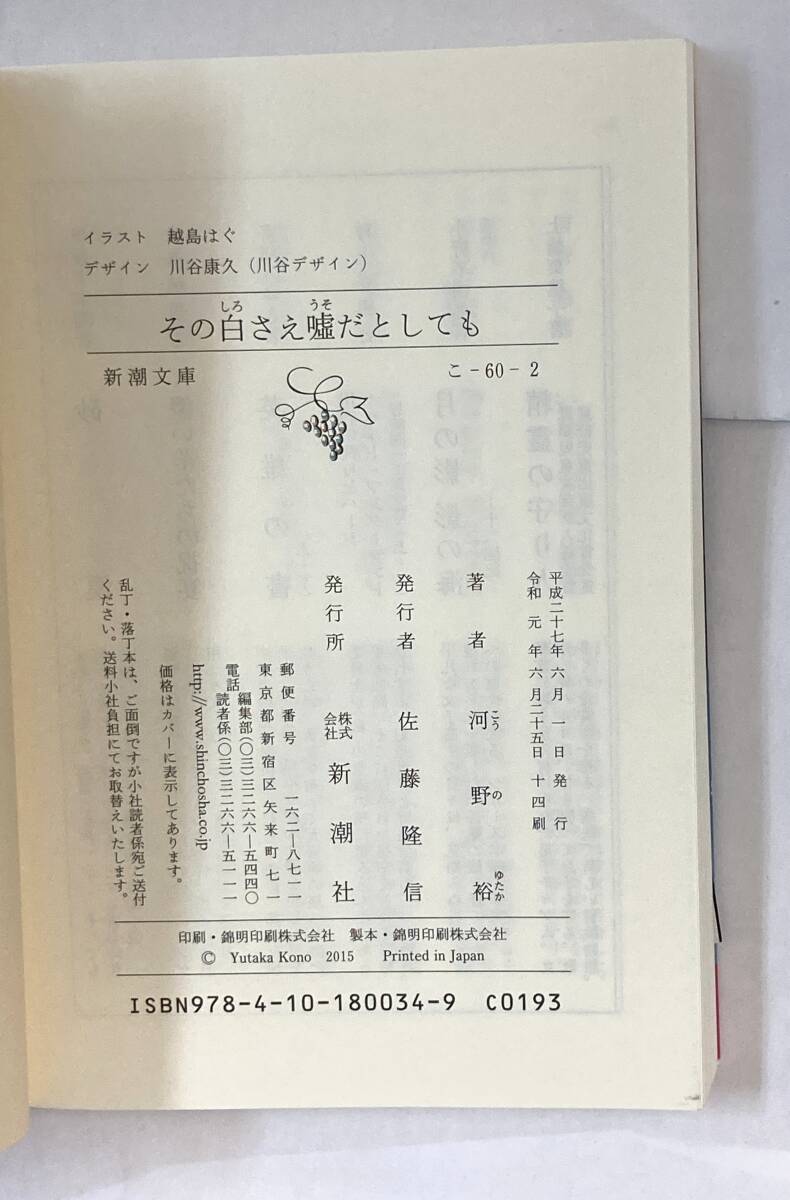 イラスト 越島はぐ
デザイン 川谷康久（川谷デザイン）
その白さえ嘘だとしても
しろ うそ
新潮文庫 こ-60-2
平成二十七年 六月 一日 発行
令和 元年 六月二十五日 十四刷
著者 河野裕
こうの ゆたか
発行者 佐藤隆信
発行所 株式会社 新潮社
郵便番号 一六二―八七一一
東京都新宿区矢来町七一
電話 編集部(〇三)三二六六―五四四〇
読者係(〇三)三二六六―五一一一
http://www.shinchosha.co.jp
価格はカバーに表示してあります。
乱丁・落丁本は、ご面倒ですが小社読者係宛ご送付
ください。送料小社負担にてお取替えいたします。
印刷・錦明印刷株式会社 製本・錦明印刷株式会社
© Yutaka Kono 2015 Printed in Japan
ISBN978-4-10-180034-9 C0193